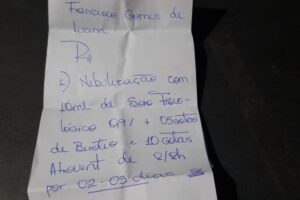 Francisco Gomes de
1) Nebulização com
10ml de Soro Fisio-
lógico 0,9% + 05 gotas
de Berotec e 10 gotas
Atrovent de 8/8h
por 02-03 dias